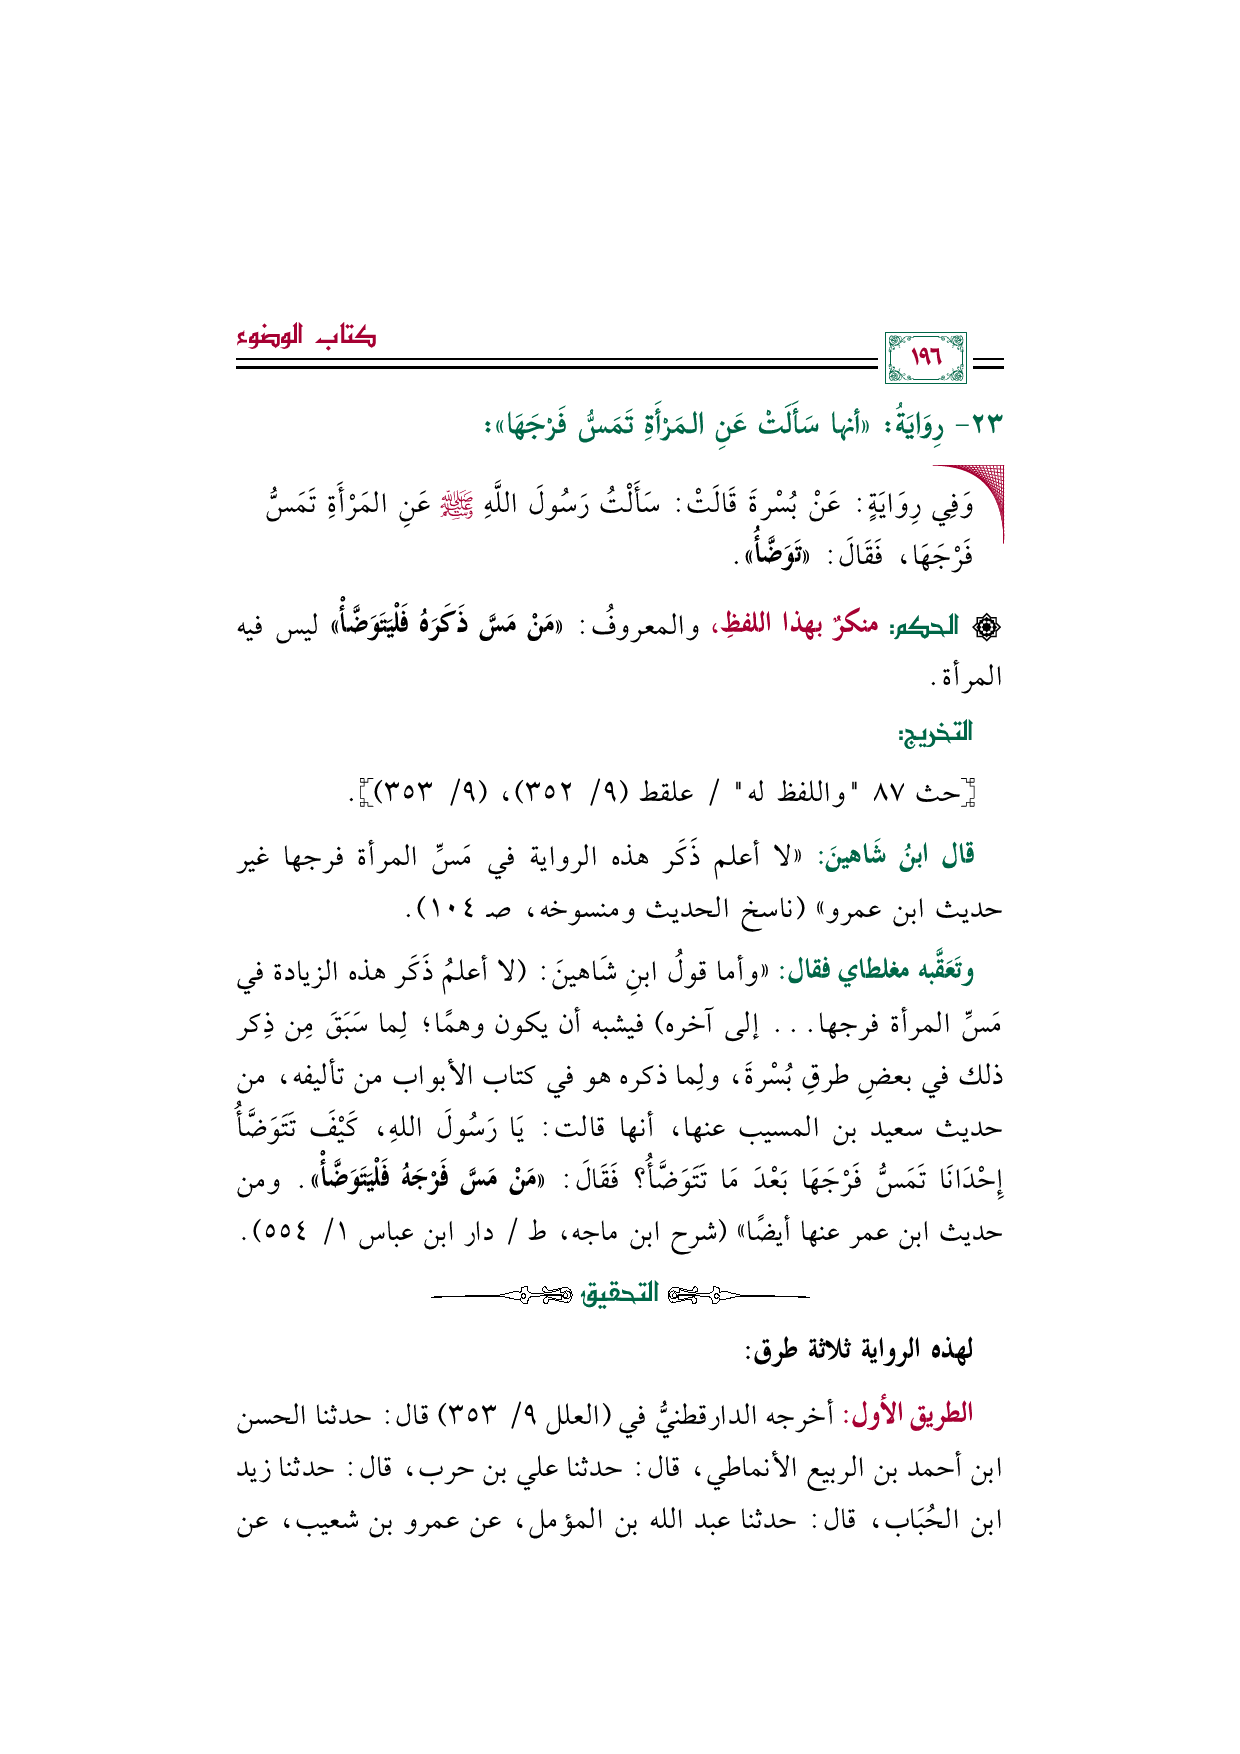 كتاب الوضوء
١٩٦
٢٣- رِوَايَةُ: «أنها سَأَلَتْ عَنِ المَرْأَةِ تَمَسُّ فَرْجَهَا»:
وَفِي رِوَايَةٍ: عَنْ بُسْرةَ قَالَتْ: سَأَلْتُ رَسُولَ اللَّهِ ﷺ عَنِ المَرْأَةِ تَمَسُّ
فَرْجَهَا، فَقَالَ: «تَوَضَّأُ».
الحكم: منكرٌ بهذا اللفظِ، والمعروفُ: «مَنْ مَسَّ ذَكَرَهُ فَلْيَتَوَضَّأْ» ليس فيه
المرأة.
التخريج:
[حث ٨٧ "واللفظ له" / علقط (٩/ ٣٥٢)، (٩/ ٣٥٣)].
قال ابنُ شَاهينَ: «لا أعلم ذَكَر هذه الرواية في مَسِّ المرأة فرجها غير
حديث ابن عمرو» (ناسخ الحديث ومنسوخه، صـ ١٠٤).
وتَعَقَّبه مغلطاي فقال: «وأما قولُ ابنِ شَاهينَ: (لا أعلمُ ذَكَر هذه الزيادة في
مَسِّ المرأة فرجها... إلى آخره) فيشبه أن يكون وهمًا؛ لِما سَبَقَ مِن ذِكر
ذلك في بعضِ طرقِ بُسْرةَ، ولِما ذكره هو في كتاب الأبواب من تأليفه، من
حديث سعيد بن المسيب عنها، أنها قالت: يَا رَسُولَ اللهِ، كَيْفَ تَتَوَضَّأُ
إِحْدَانَا تَمَسُّ فَرْجَهَا بَعْدَ مَا تَتَوَضَّأُ؟ فَقَالَ: «مَنْ مَسَّ فَرْجَهُ فَلْيَتَوَضَّأْ». ومن
حديث ابن عمر عنها أيضًا» (شرح ابن ماجه، ط / دار ابن عباس ١/ ٥٥٤).
التحقيق
لهذه الرواية ثلاثة طرق:
الطريق الأول: أخرجه الدارقطنيُّ في (العلل ٩/ ٣٥٣) قال: حدثنا الحسن
ابن أحمد بن الربيع الأنماطي، قال: حدثنا علي بن حرب، قال: حدثنا زيد
ابن الحُبَاب، قال: حدثنا عبد الله بن المؤمل، عن عمرو بن شعيب، عن